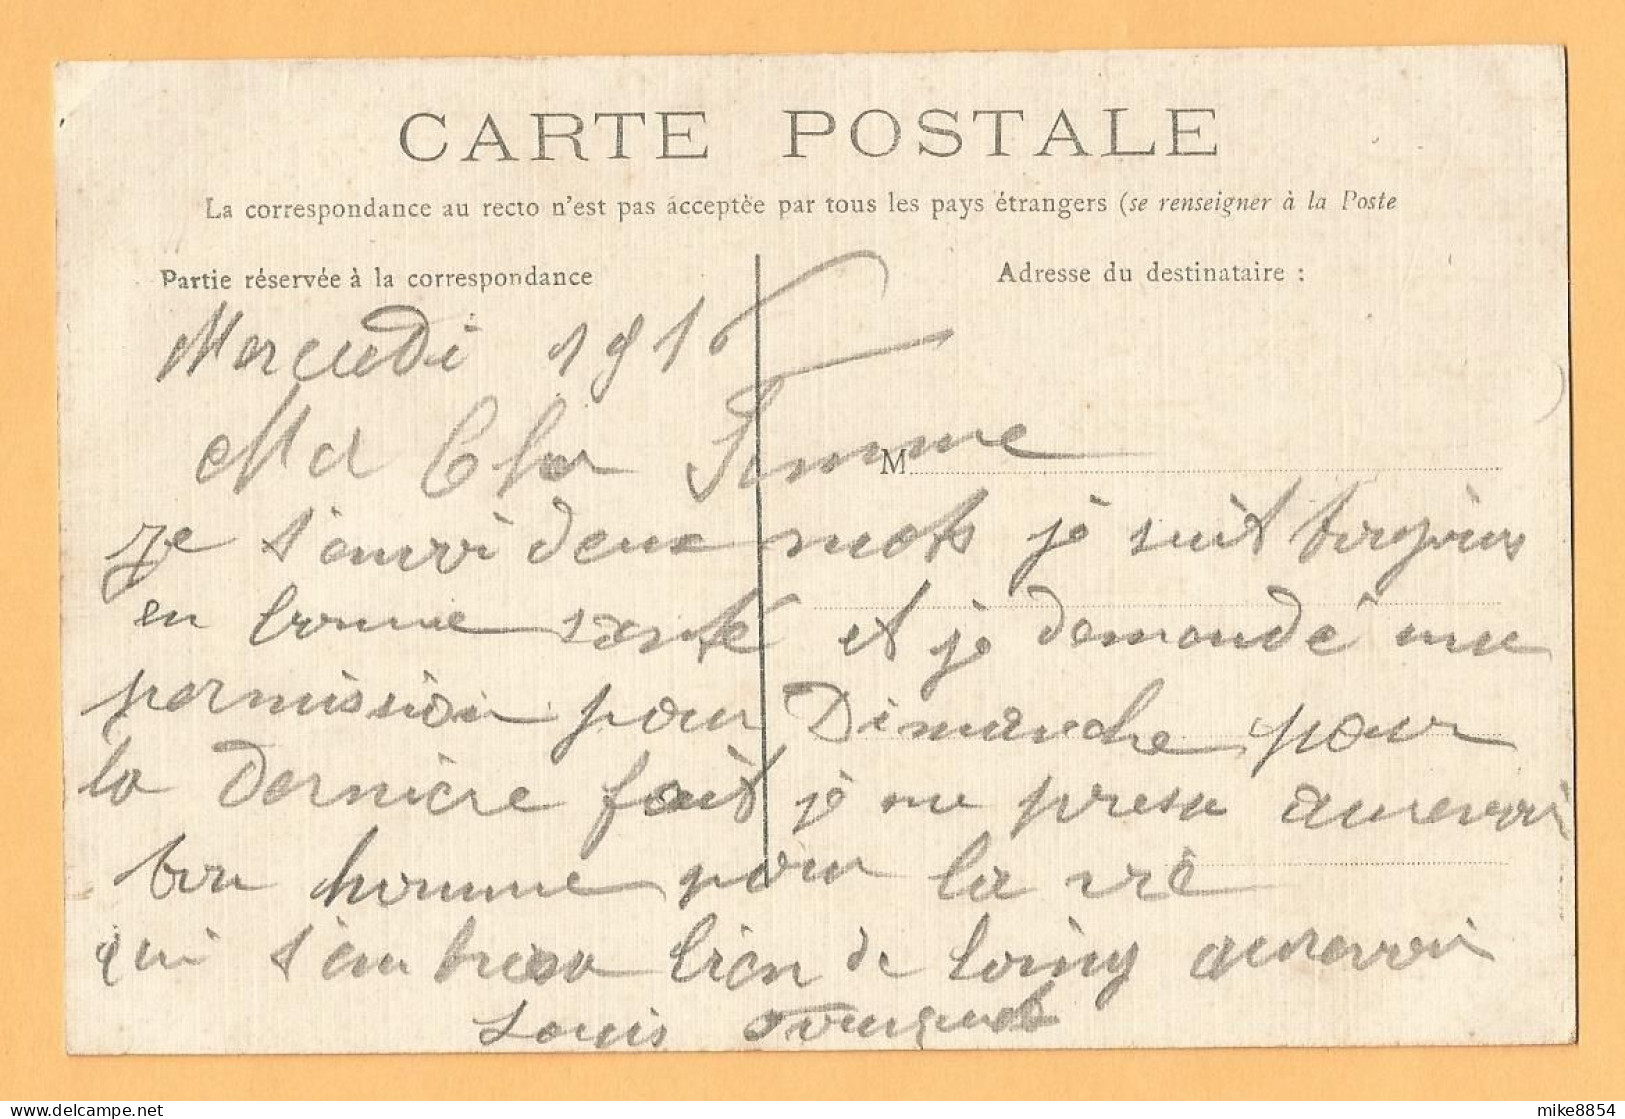 CARTE POSTALE
La correspondance au recto n'est pas acceptée par tous les pays étrangers (se renseigner à la Poste
Partie réservée à la correspondance
Adresse du destinataire :
Mercredi 1916
Ma Cher Femme
M
Je t'envoi deux mots je suit toujours
en bonne sante et je demandé une
permission pour Dimanche pour
la dernière fait je me presse aurevoir
ton homme pour la vie
qui t'embrasse bien de loing aurevoir
Louis
mike8854